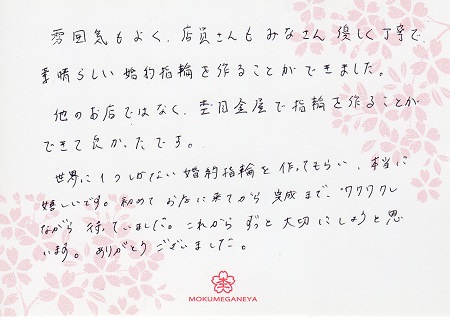 雰囲気もよく、店員さんもみなさん優しく丁寧で、
素晴らしい婚約指輪を作ることができました。
他のお店ではなく、杢目金屋で指輪を作ることが
できて良かったです。
世界に1つしかない婚約指輪を作ってもらい、本当に
嬉しいです。初めてお店に来てから完成まで、ワクワクし
ながら待っていました。これからずっと大切にしようと思
います。ありがとうございました。
MOKUMEGANEYA